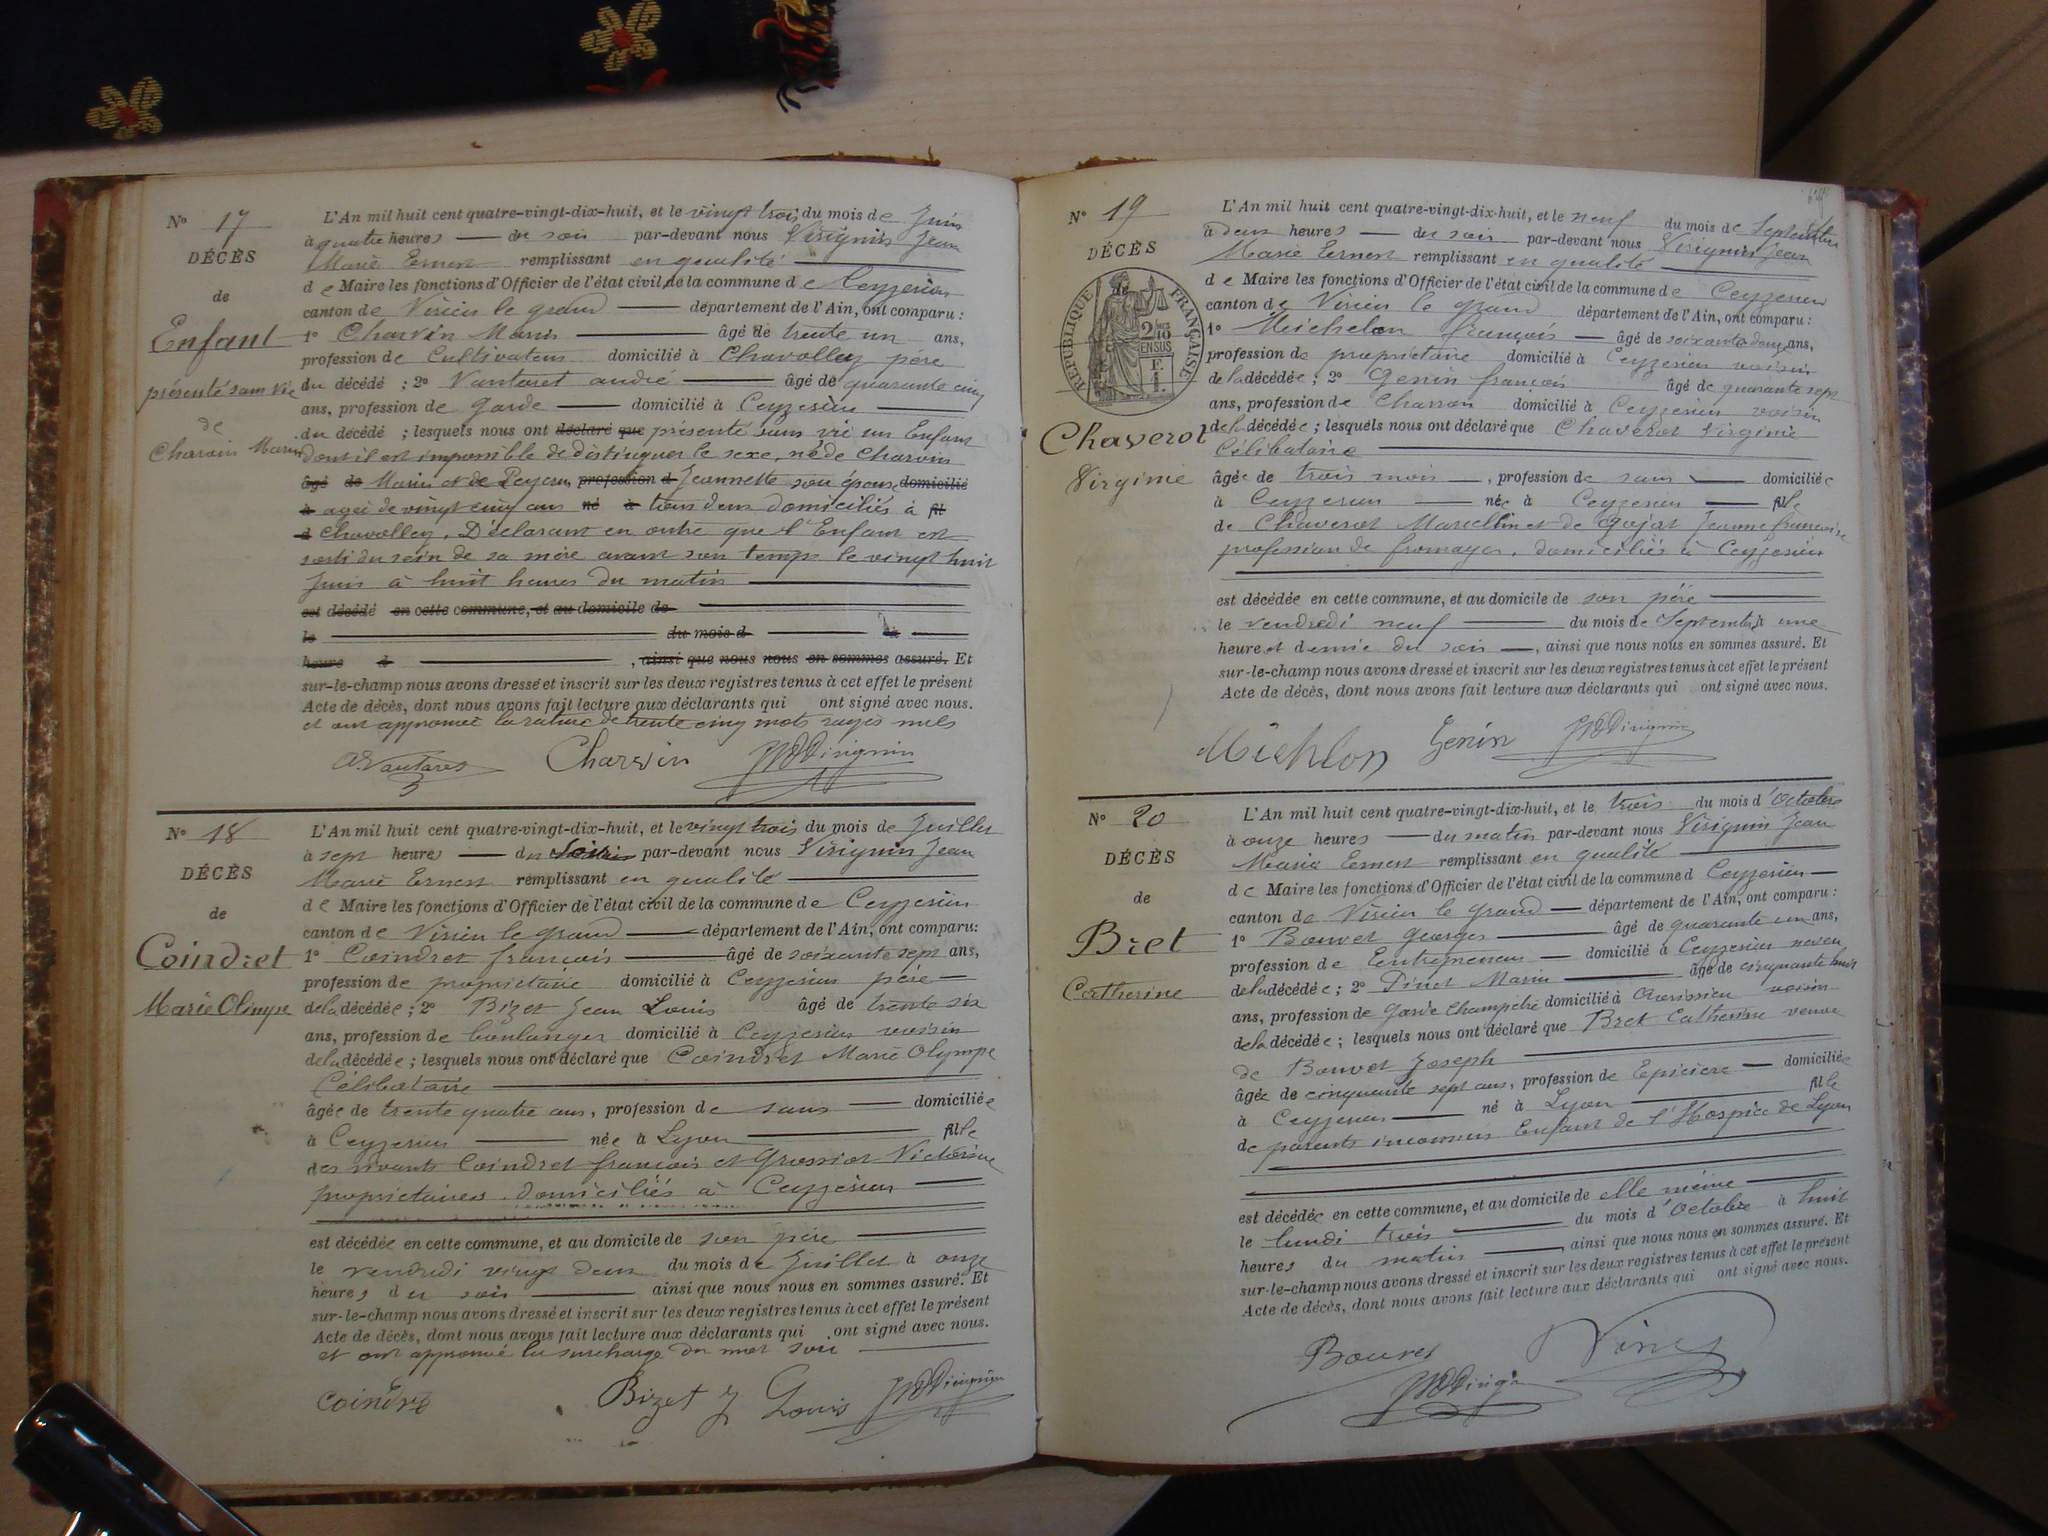 N° 17
DÉCÈS
de
Enfant
présenté sans vie
de
Charvin Marin
L'An mil huit cent quatre-vingt-dix-huit, et le vingt trois du mois de Juin
à quatre heures du soir par-devant nous Virignin Jean
Marie Ernest remplissant en qualité
de Maire les fonctions d'Officier de l'état civil de la commune de Ceyzerieu
canton de Virieu le grand département de l'Ain, ont comparu :
1° Charvin Marin âgé de trente un ans,
profession de Cultivateur domicilié à Chavolley père
du décédé ; 2° Vantaret andré âgé de quarante cinq
ans, profession de garde domicilié à Ceyzerieu
du décédé ; lesquels nous ont déclaré que présenté sans vie un Enfant
dont il est impossible de distinguer le sexe, né de Charvin
âgé de Marin et de Peyron profession d Jeannette son épouse domicilié
à agée de vingt cinq ans né à tous deux domiciliés à fil
d Chavolley. Déclarant en outre que l'Enfant est
sorti du sein de sa mère avant son temps le vingt huit
Juin à huit heures du matin
est décédé en cette commune, et au domicile de
le du mois d à
heure d , ainsi que nous nous en sommes assuré. Et
sur-le-champ nous avons dressé et inscrit sur les deux registres tenus à cet effet le présent
Acte de décès, dont nous avons fait lecture aux déclarants qui ont signé avec nous.
et ont approuvé la rature de trente cinq mots rayés nuls
A. Vantares Charvin Virignin
N° 18
DÉCÈS
de
Coindret
Marie Olimpe
L'An mil huit cent quatre-vingt-dix-huit, et le vingt trois du mois de Juillet
à sept heures du soir par-devant nous Virignin Jean
Marie Ernest remplissant en qualité
de Maire les fonctions d'Officier de l'état civil de la commune de Ceyzerieu
canton de Virieu le grand département de l'Ain, ont comparu :
1° Coindret francois âgé de soixante sept ans,
profession de propriétaire domicilié à Ceyzerieu père
de la décédée ; 2° Bizet Jean Louis âgé de trente six
ans, profession de boulanger domicilié à Ceyzerieu voisin
de la décédée ; lesquels nous ont déclaré que Coindret Marie Olympe
Célibataire
âgée de trente quatre ans, profession de sans domiciliée
à Ceyzerieu née à Lyon fille
des vivants Coindret francois et Grossiot Victorine
propriétaires domiciliés à Ceyzerieu
est décédée en cette commune, et au domicile de son père
le vendredi vingt deux du mois de Juillet à onze
heures du soir ainsi que nous nous en sommes assuré. Et
sur-le-champ nous avons dressé et inscrit sur les deux registres tenus à cet effet le présent
Acte de décès, dont nous avons fait lecture aux déclarants qui ont signé avec nous.
et ont approuvé la surcharge du mot soir
Coindre Bizet J Louis Virignin
N° 19
DÉCÈS
de
RÉPUBLIQUE FRANÇAISE
2/10 EN SUS
Chaverot
Virginie
L'An mil huit cent quatre-vingt-dix-huit, et le neuf du mois de Septembre
à deux heures du soir par-devant nous Virignin Jean
Marie Ernest remplissant en qualité
de Maire les fonctions d'Officier de l'état civil de la commune de Ceyzerieu
canton de Virieu le grand département de l'Ain, ont comparu :
1° Michelon françois âgé de soixante douze ans,
profession de propriétaire domicilié à Ceyzerieu voisin
de la décédée ; 2° Genin françois âgé de quarante sept
ans, profession de Charron domicilié à Ceyzerieu voisin
de la décédée ; lesquels nous ont déclaré que Chaverot Virginie
Célibataire
âgée de trois mois , profession de sans domiciliée
à Ceyzerieu née à Ceyzerieu fille
de Chaverot Marcellin et de Gojat Jeanne françoise
profession de fromager. domiciliés à Ceyzerieu
est décédée en cette commune, et au domicile de son père
le vendredi neuf du mois de Septembre à une
heure et demie du soir , ainsi que nous nous en sommes assuré. Et
sur-le-champ nous avons dressé et inscrit sur les deux registres tenus à cet effet le présent
Acte de décès, dont nous avons fait lecture aux déclarants qui ont signé avec nous.
Michlon Genin Virignin
N° 20
DÉCÈS
de
Bret
Catherine
L'An mil huit cent quatre-vingt-dix-huit, et le trois du mois d'Octobre
à onze heures du matin par-devant nous Virignin Jean
Marie Ernest remplissant en qualité
de Maire les fonctions d'Officier de l'état civil de la commune d Ceyzerieu
canton de Virieu le grand département de l'Ain, ont comparu :
1° Bouvet Georges âgé de quarante un ans,
profession de Entrepreneur domicilié à Ceyzerieu neveu
de la décédée ; 2° Dinet Marin âgé de cinquante huit
ans, profession de garde Champêtre domicilié à voisin
de la décédée ; lesquels nous ont déclaré que Bret Catherine veuve
de Bouvet Joseph
âgée de cinquante sept ans, profession de Epicière domiciliée
à Ceyzerieu né à Lyon fille
de parents inconnus Enfant de l'Hospice de Lyon
est décédée en cette commune, et au domicile de elle même
le lundi trois du mois d'Octobre à huit
heures du matin , ainsi que nous nous en sommes assuré. Et
sur-le-champ nous avons dressé et inscrit sur les deux registres tenus à cet effet le présent
Acte de décès, dont nous avons fait lecture aux déclarants qui ont signé avec nous.
Bouvet
Virignin